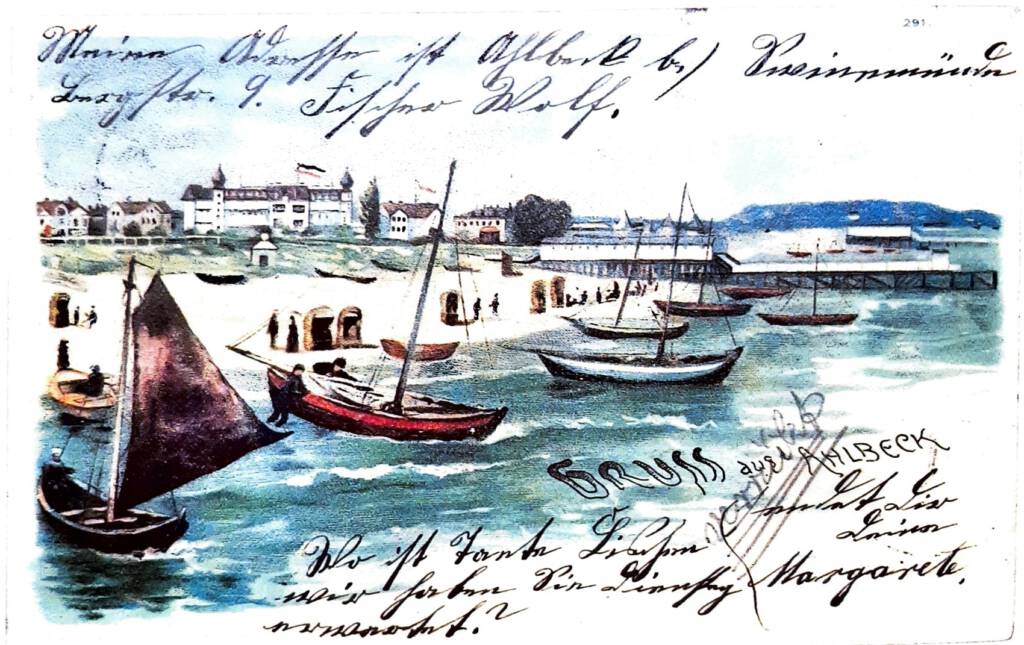 291.
Meine Adresse ist Ahlbeck b/ Swinemünde
Bergstr. 9. Fischer Wolf.
GRUSS aus AHLBECK
sendet Dir
Deine
Margarete.
Wo ist Tante Lischen
wir haben Sie Dienstag
erwartet.?